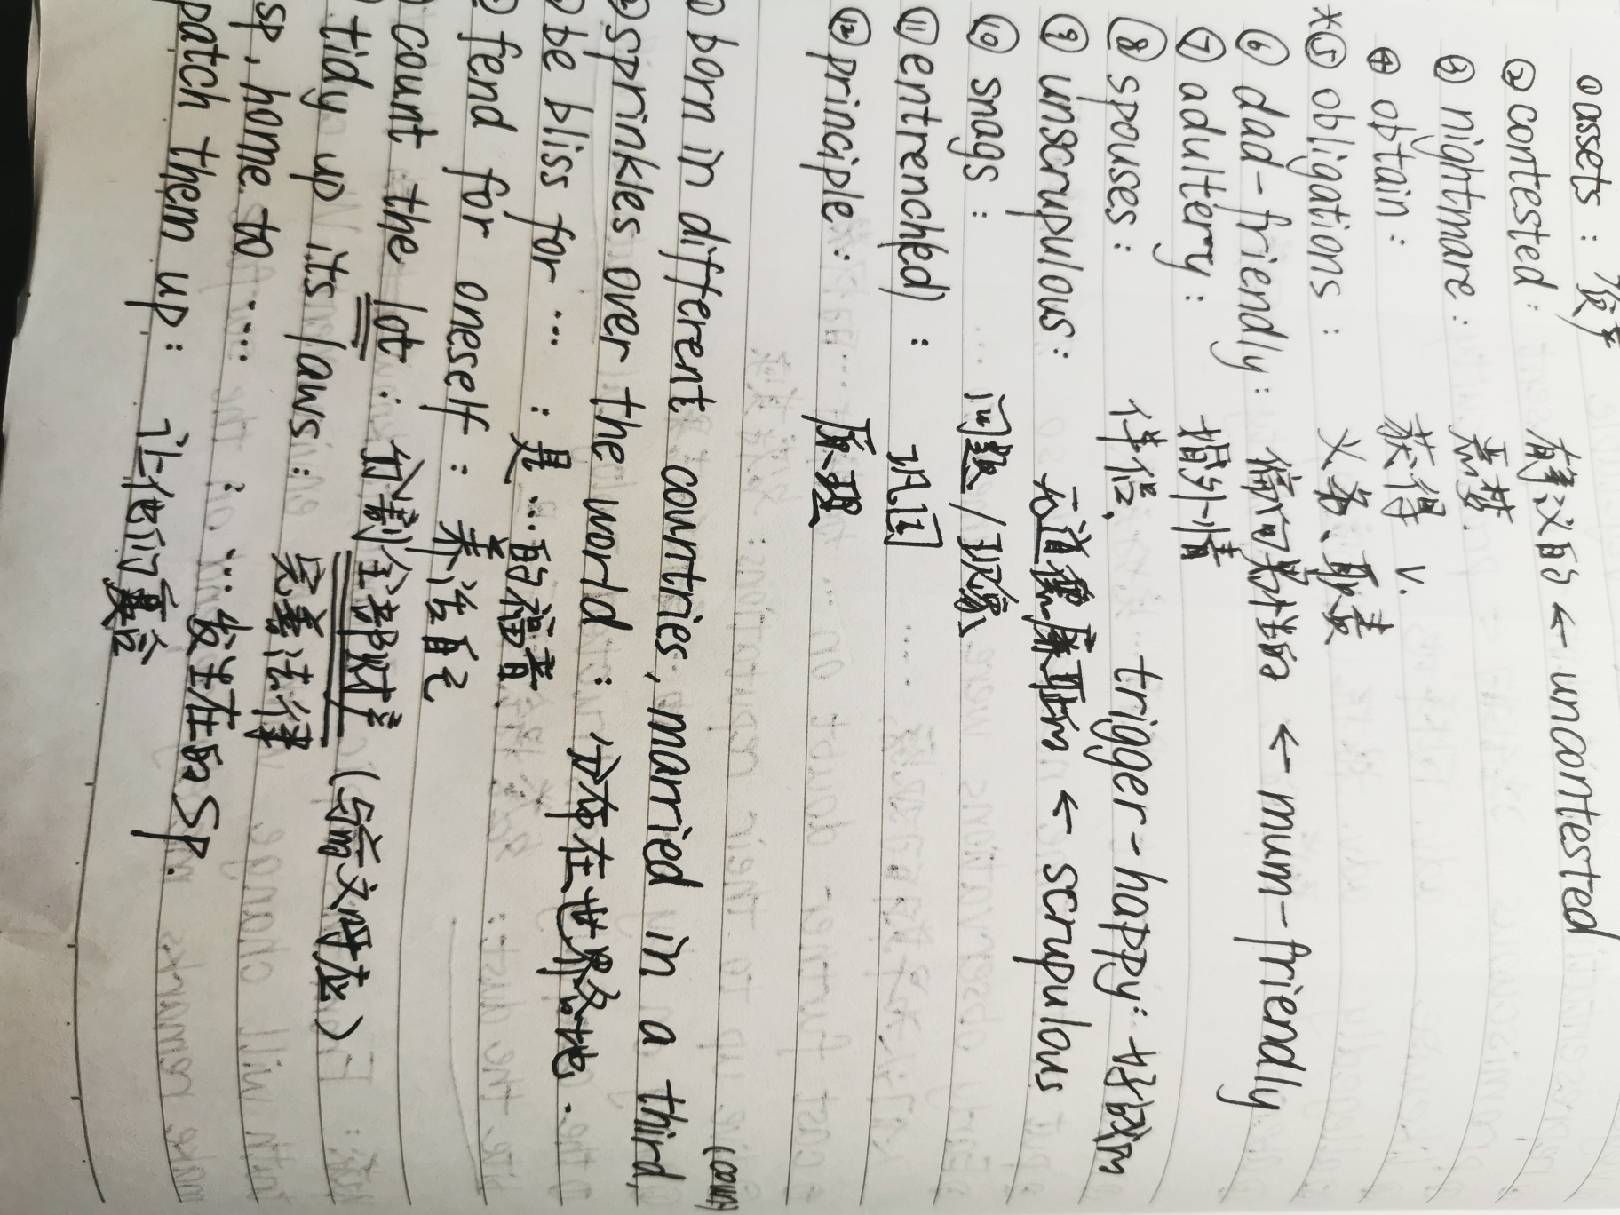 assets:
② contested: 有争议的 ← uncontested
③ nightmare: 恶梦
④ obtain: 获得 v.
*⑤ obligations: 义务、职责
⑥ dad-friendly: 偏向男性的 ← mum-friendly
⑦ adultery: 婚外情
⑧ spouses: 伴侣、 trigger-happy: 好战的
⑨ unscrupulous: 无道德廉耻的 ← scrupulous
⑩ snags: 问题/现象
⑪ entrench(ed): 巩固
⑫ principle: 原理
born in different countries, married in a third
sprinkles over the world: 分布在世界各地.
be bliss for …: 是…的福音
fend for oneself: 养活自己
count the lot: 分割全部财产
tidy up its laws: 完善法律
sp. home to ….. 发生在的sp.
patch them up: 让他们复合